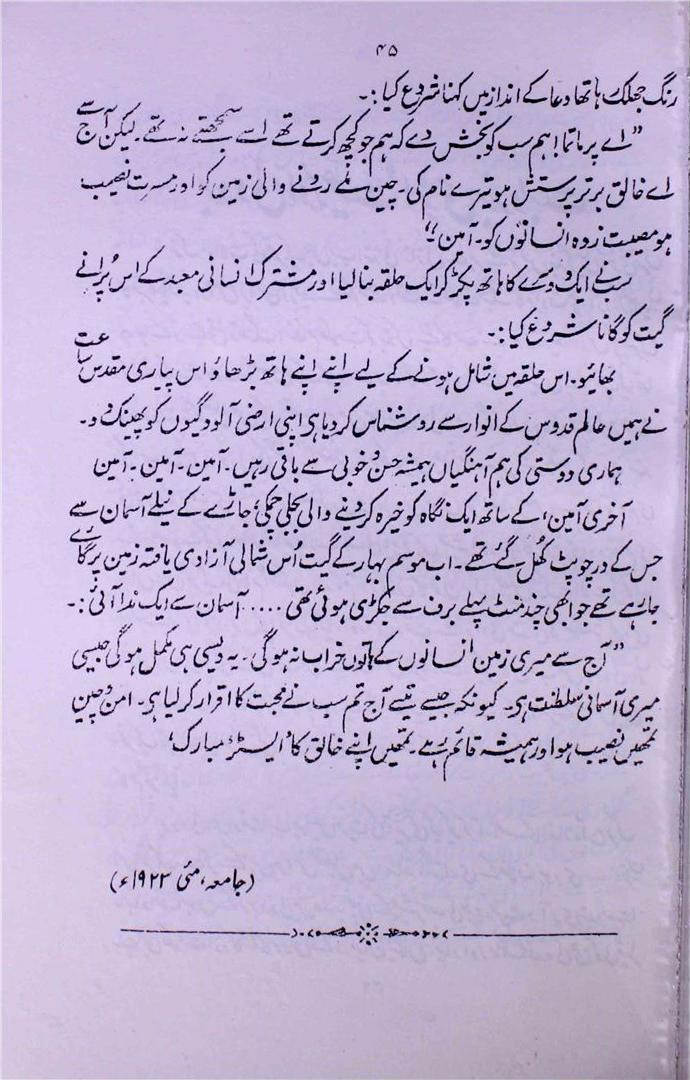 ۴۵
رنگ جھلک رہا تھا دعا کے انداز میں کہنا شروع کیا:۔
”اے پرماتما! ہم سب کو بخش دے کہ ہم جو کچھ کرتے تھے اسے سمجھتے نہ تھے۔ لیکن آج سے
اے خالق برتر پرستش ہو تیرے نام کی۔ چین ملے رونے والی زمین کو اور مسرت نصیب
ہو مصیبت زدہ انسانوں کو۔ آمین“
سب نے ایک دوسرے کا ہاتھ پکڑ کر ایک حلقہ بنا لیا اور مشترک انسانی معبد کے اس پُرانے
گیت کو گانا شروع کیا:۔
بھائیو۔ اس حلقہ میں شامل ہونے کے لیے اپنے اپنے ہاتھ بڑھاؤ اس پیاری مقدس ساعت
نے ہمیں عالم قدوس کے انوار سے روشناس کر دیا ہی اپنی ارضی آلودگیوں کو پھینک دو۔
ہماری دوستی کی ہم آہنگیاں ہمیشہ حسن و خوبی سے باقی رہیں۔ آمین۔ آمین۔ آمین
آخری آمین، کے ساتھ ایک نگاہ کو خیرہ کر دینے والی بجلی چمکی، جاڑے کے نیلے آسمان سے
جس کے در چوپٹ کُھل گئے تھے۔ اب موسم بہار کے گیت اُس شمالی آزادی یافتہ زمین پر گائے
جا رہے تھے جو ابھی چند منٹ پہلے برف سے جکڑی ہوئی تھی ..... آسمان سے ایک ندا آئی:۔
”آج سے میری زمین انسانوں کے ہاتوں خراب نہ ہوگی۔ یہ ویسی ہی مکمل ہوگی جیسی
میری آسمانی سلطنت ہی۔ کیونکہ جیسے تیسے آج تم سب نے محبت کا اقرار کر لیا ہی۔ امن و چین
تمھیں نصیب ہو اور ہمیشہ قائم رہے۔ تمھیں اپنے خالق کا ’ایسٹر مبارک‘
(جامعہ، مئی ۱۹۲۳ء)